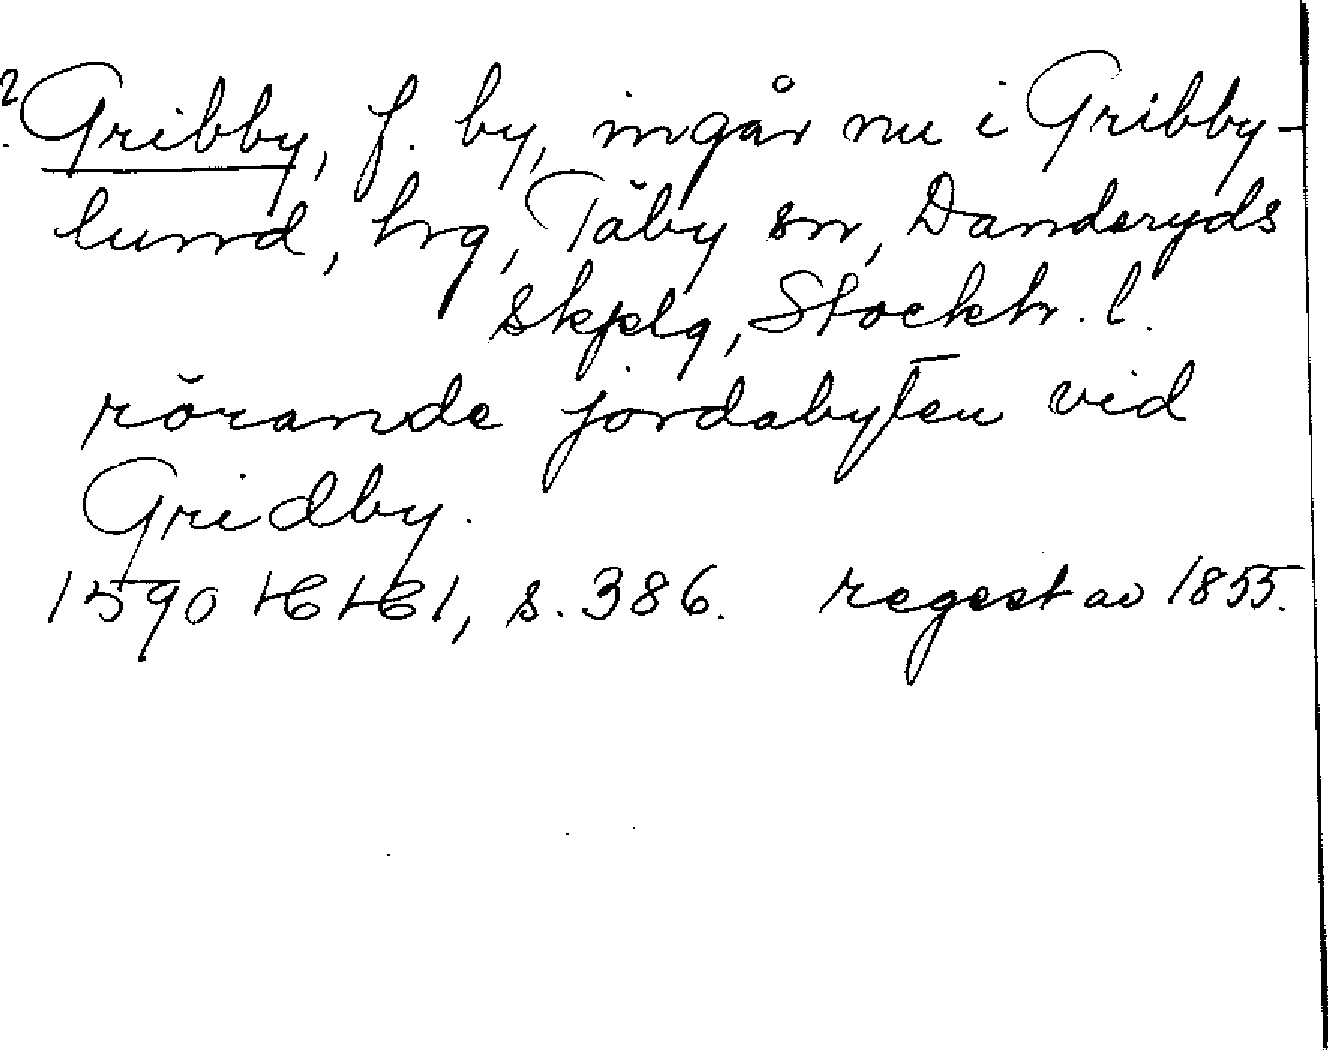 ? Gribby, f. by, ingår nu i Gribby-
lund, hrg, Täby sn, Danderyds
skplg, Stockh. l.
rörande jordabyten vid
Gridby.
1590 HH1, s. 386. regest av 1855.